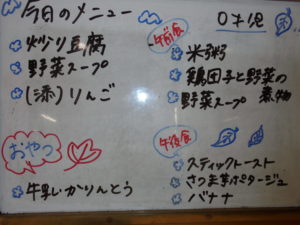 今日のメニュー
炒り豆腐
野菜スープ
(添)りんご
おやつ
牛乳・かりんとう
0才児
午前食
米粥
鶏団子と野菜の煮物
野菜スープ
午後食
スティックトースト
さつま芋ポタージュ
バナナ